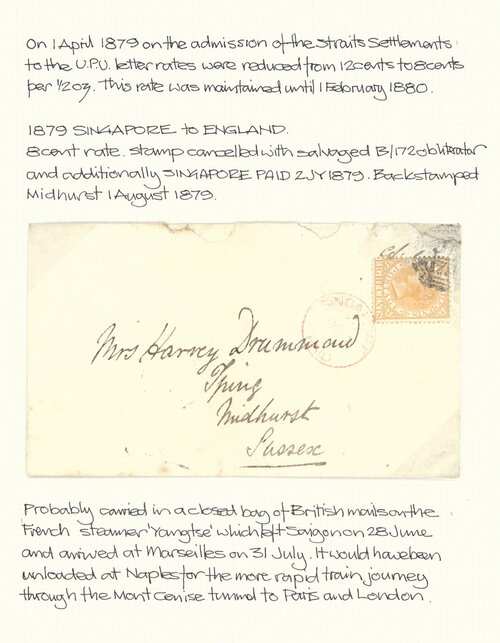 On 1 April 1879 on the admission of the Straits Settlements
to the U.P.U. letter rates were reduced from 12cents to 8cents
per 1/2oz. This rate was maintained until 1 February 1880.
1879 SINGAPORE to ENGLAND.
8cent rate. Stamp cancelled with salvaged B/172 obliterator
and additionally SINGAPORE PAID 2JY1879. Backstamped
Midhurst 1 August 1879.
SINGA
PAID
Mrs Harvey Drummond
Iping
Midhurst
Sussex
Probably carried in a closed bag of British mails on the
French steamer 'Yangtse' which left Saigon on 28 June
and arrived at Marseilles on 31 July. It would have been
unloaded at Naples for the more rapid train journey
through the Mont Cenise tunnel to Paris and London.